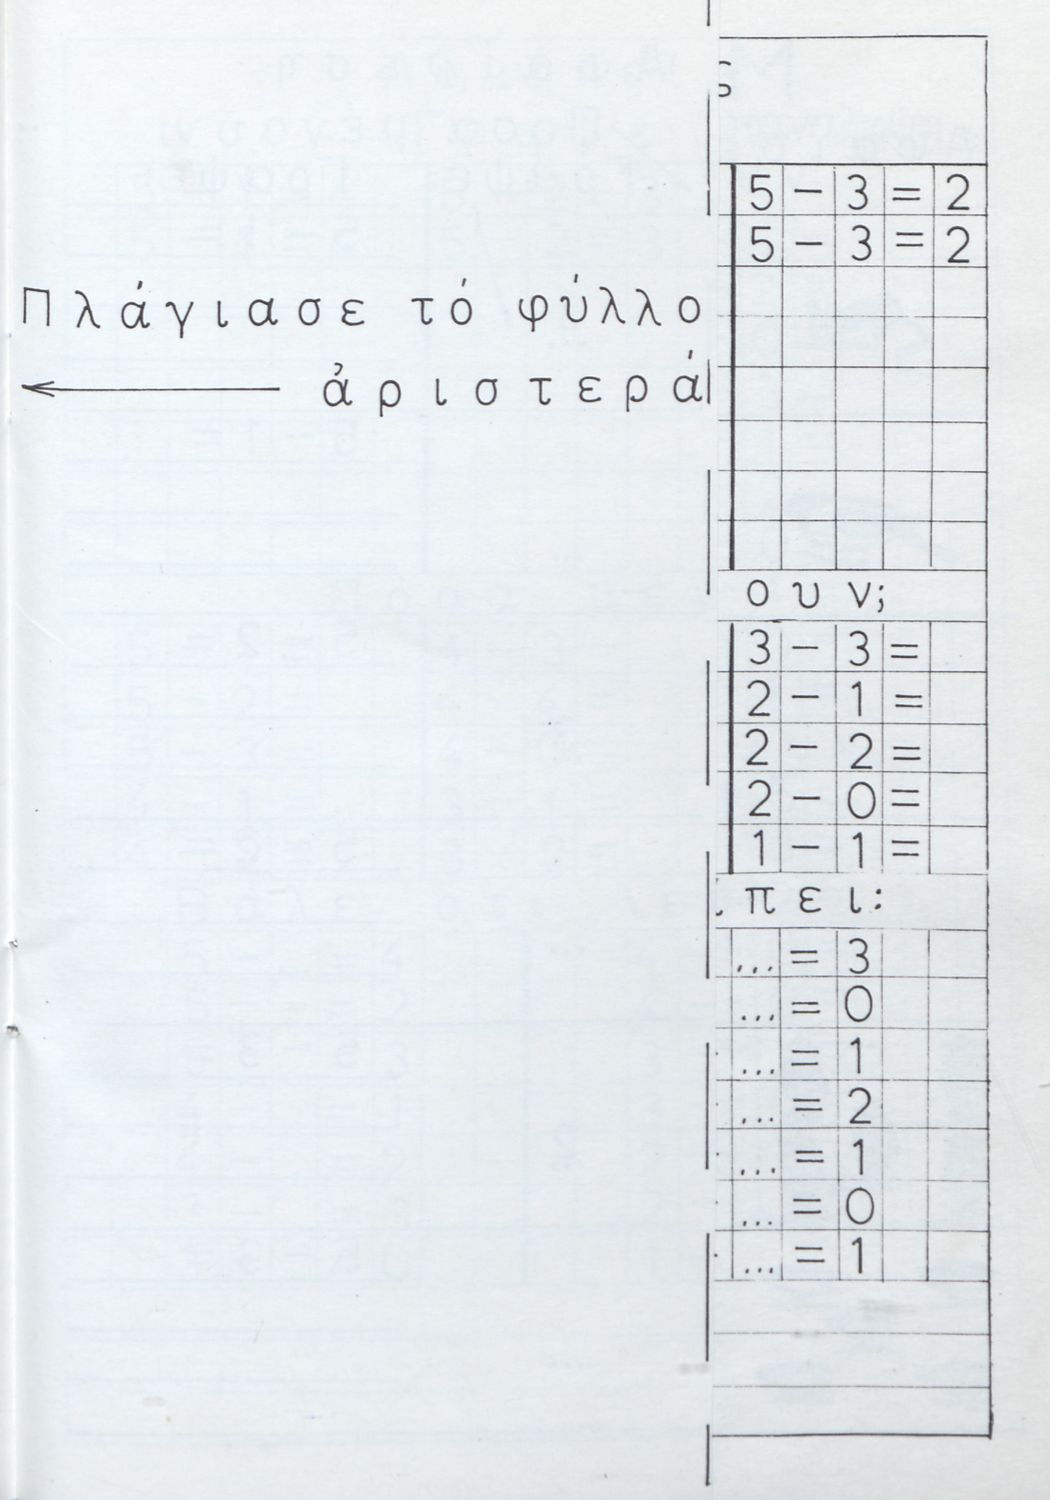 ς
5 - 3 = 2
5 - 3 = 2
Πλάγιασε τό φύλλο
ἀριστερά
ουν;
3 - 3 =
2 - 1 =
2 - 2 =
2 - 0 =
1 - 1 =
πει:
... = 3
... = 0
... = 1
... = 2
... = 1
... = 0
... = 1